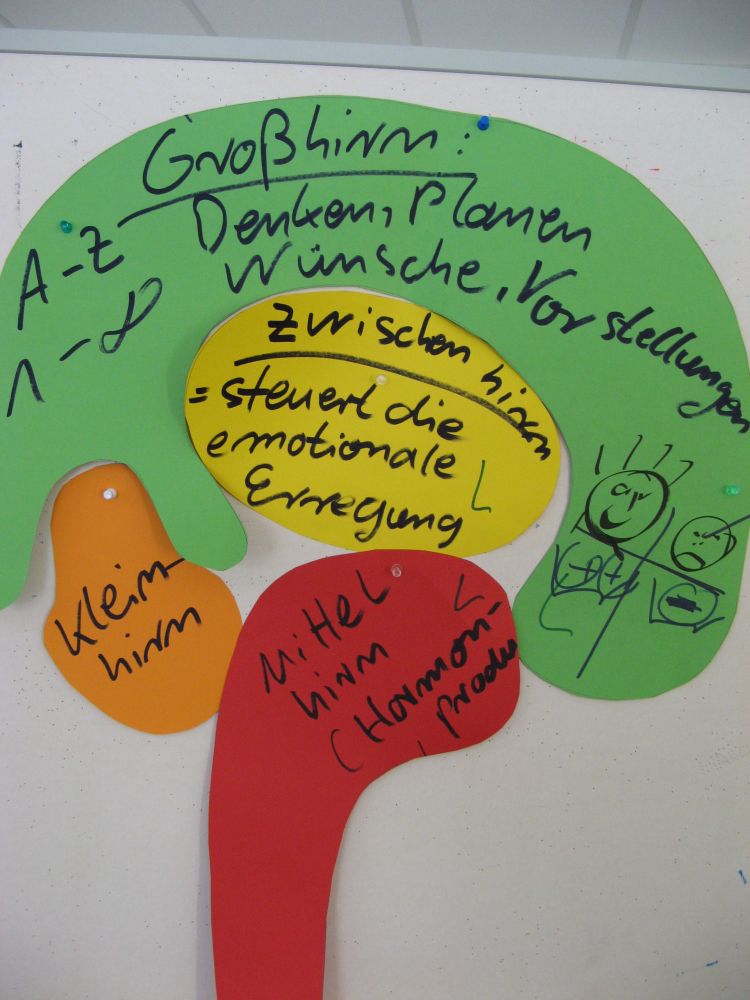 Großhirn:
Denken, Planen
A-Z
Wünsche, Vorstellungen
1-∞
Zwischenhirn
= steuert die
emotionale
Erregung
Klein-
hirn
Mittel
hirn
(Hormon-
produ